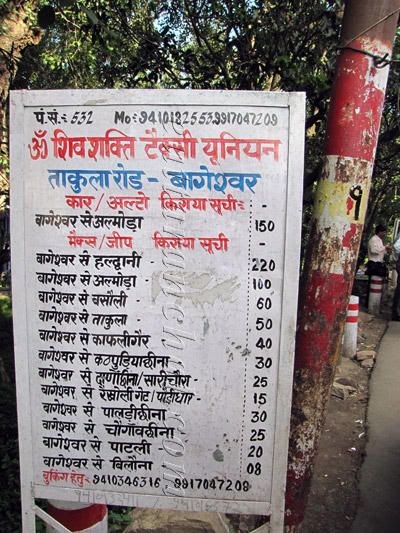 पं.सं.: 532 Mo: 9410182553, 9917047209
ॐ शिव शक्ति टैक्सी यूनियन
ताकुला रोड़ - बागेश्वर
कार/अल्टो किराया सूची:
बागेश्वर से अल्मोड़ा 150
मैक्स/जीप किराया सूची
बागेश्वर से हल्द्वानी 220
बागेश्वर से अल्मोड़ा 100
बागेश्वर से बसौली 60
बागेश्वर से ताकुला 50
बागेश्वर से काफलीगैर 40
बागेश्वर से कठपुड़ियाछीना 30
बागेश्वर से दाणोछीना/सारीचौरा - 25
बागेश्वर से 15
बागेश्वर से पालड़ीछीना 30
बागेश्वर से चौगांवछीना 25
बागेश्वर से पाटली 20
बागेश्वर से बिलौना 08
बुकिंग हेतु: 9410346316, 9917047209
१